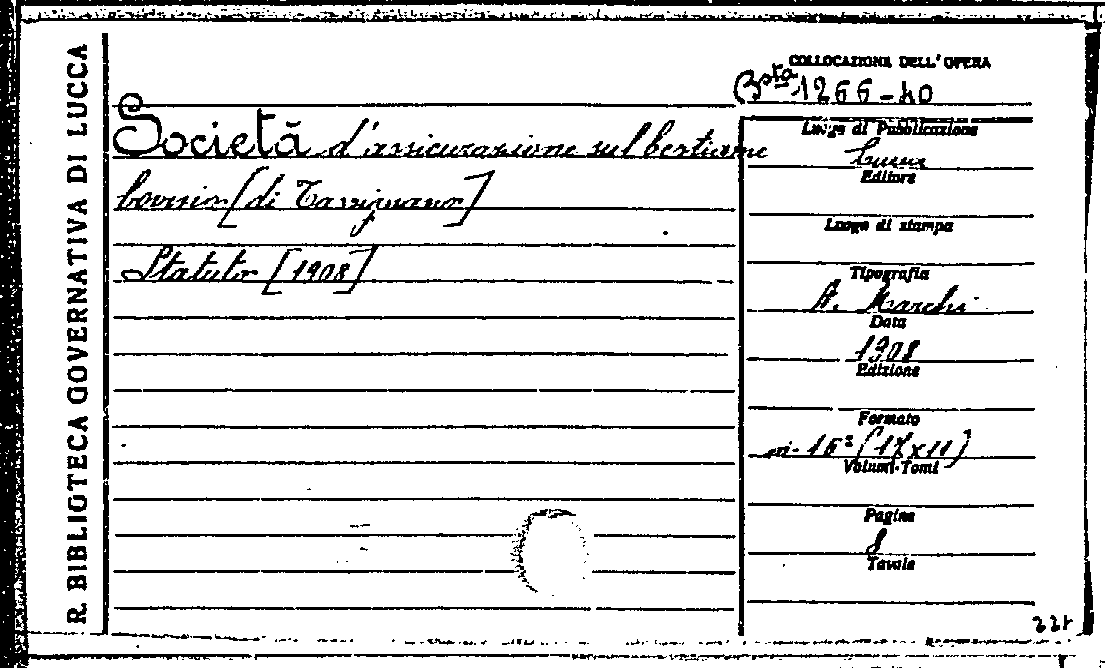 R. BIBLIOTECA GOVERNATIVA DI LUCCA
COLLOCAZIONE DELL'OPERA
Bsta 1266-40
Società d'assicurazione sul bestiame
bovino [di Tassignano]
Statuto [1908]
Luogo di Pubblicazione
Lucca
Editore
Luogo di stampa
Tipografia
A. Marchi
Data
1908
Edizione
Formato
in-16° (17x11)
Volumi-Tomi
Pagine
8
Tavole